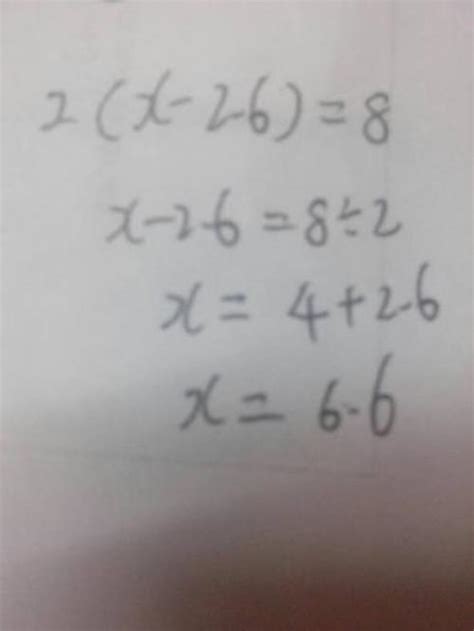 2(x-2.6)=8
x-2.6=8÷2
x=4+2.6
x=6.6